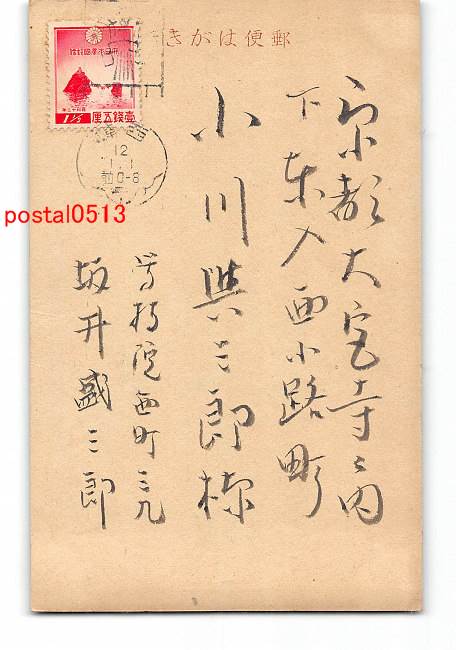 郵便はがき
京都大宮寺之内
下東入西小路町
小川與三郎様
等持院西町三九
坂井盛三郎
昭和十二年
壹錢五厘
1½
12
1.1
前0-8
postal0513